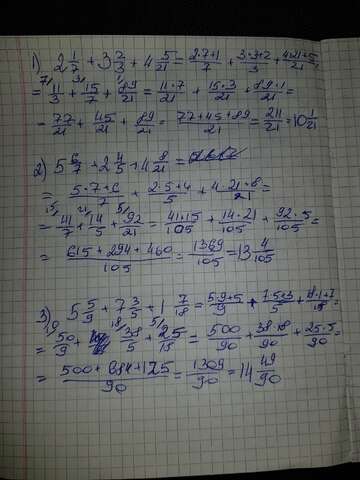 1) 2 1/7 + 3 2/3 + 4 5/21 = 2·7+1/7 + 3·3+2/3 + 4·21+5/21 =
= 11/3 + 15/7 + 89/21 = 11·7/21 + 15·3/21 + 89·1/21 =
= 77/21 + 45/21 + 89/21 = 77+45+89/21 = 211/21 = 10 1/21
2) 5 6/7 + 2 4/5 + 4 8/21 =
= 5·7+6/7 + 2·5+4/5 + 4·21+8/21 =
= 41/7 + 14/5 + 92/21 = 41·15/105 + 14·21/105 + 92·5/105 =
= 615+294+460/105 = 1369/105 = 13 4/105
3) 5 5/9 + 7 3/5 + 1 7/18 = 5·9+5/9 + 7·5+3/5 + 18·1+7/18 =
= 50/9 + 38/5 + 25/18 = 500/90 + 38·18/90 + 25·5/90 =
= 500+684+125/90 = 1309/90 = 14 49/90